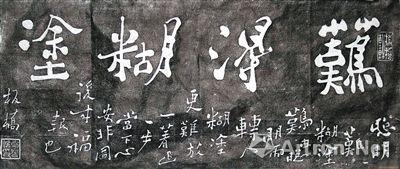 難得糊塗
聰明
難糊塗
難由聰
明而
轉入
糊塗
更難放
一著退
一步
當下心
安非圖
後來福
報也
板橋
Artron.Net